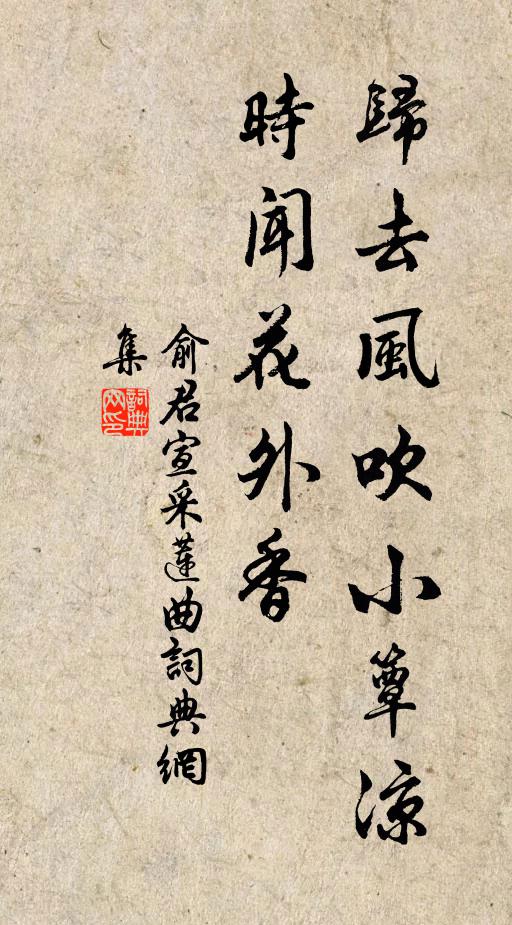 歸去風吹小簟涼
時聞花外香
俞君宣采蓮曲詞典網
集
詞典網印